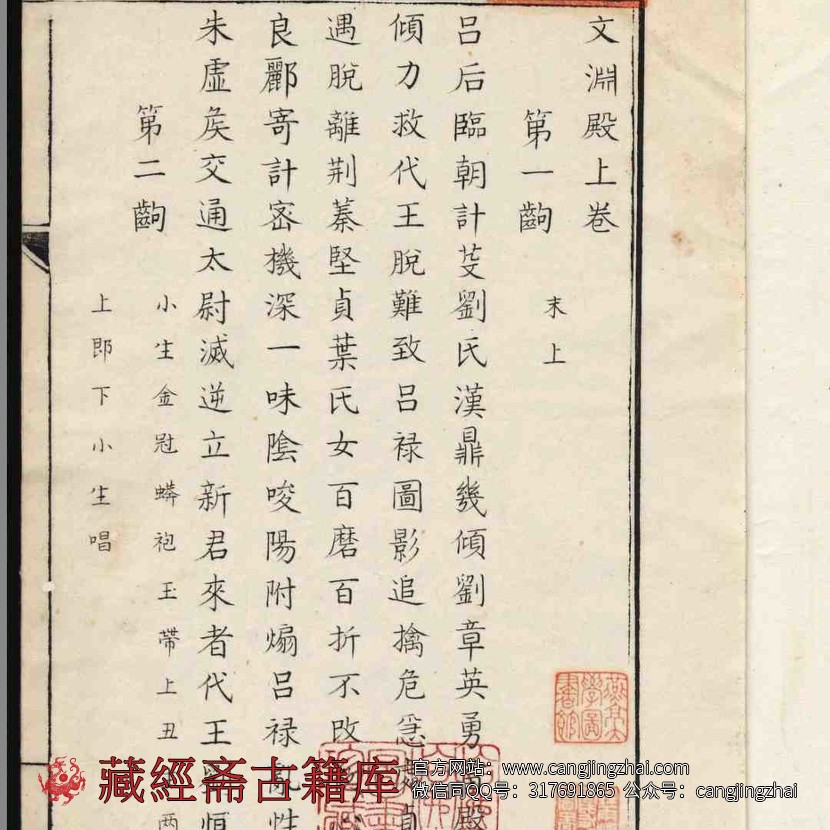 文淵殿上卷
第一齣
末上
吕后臨朝計芟劉氏漢鼎幾傾劉章英勇
殿
傾力救代王脫難致吕禄圖影追擒危急
遇脫離荆蓁堅貞葉氏女百磨百折不改
良酈寄計密機深一味陰唆陽附煽吕禄
性
朱虛矦交通太尉滅逆立新君來者代王
恒
第二齣
小生金冠蟒袍玉帶上丑
上郎下小生唱
燕京大學圖書館
藏經斋古籍库
官方网站：www.cangjingzhai.com
微信同QQ号：317691865 公众号：cangjingzhai